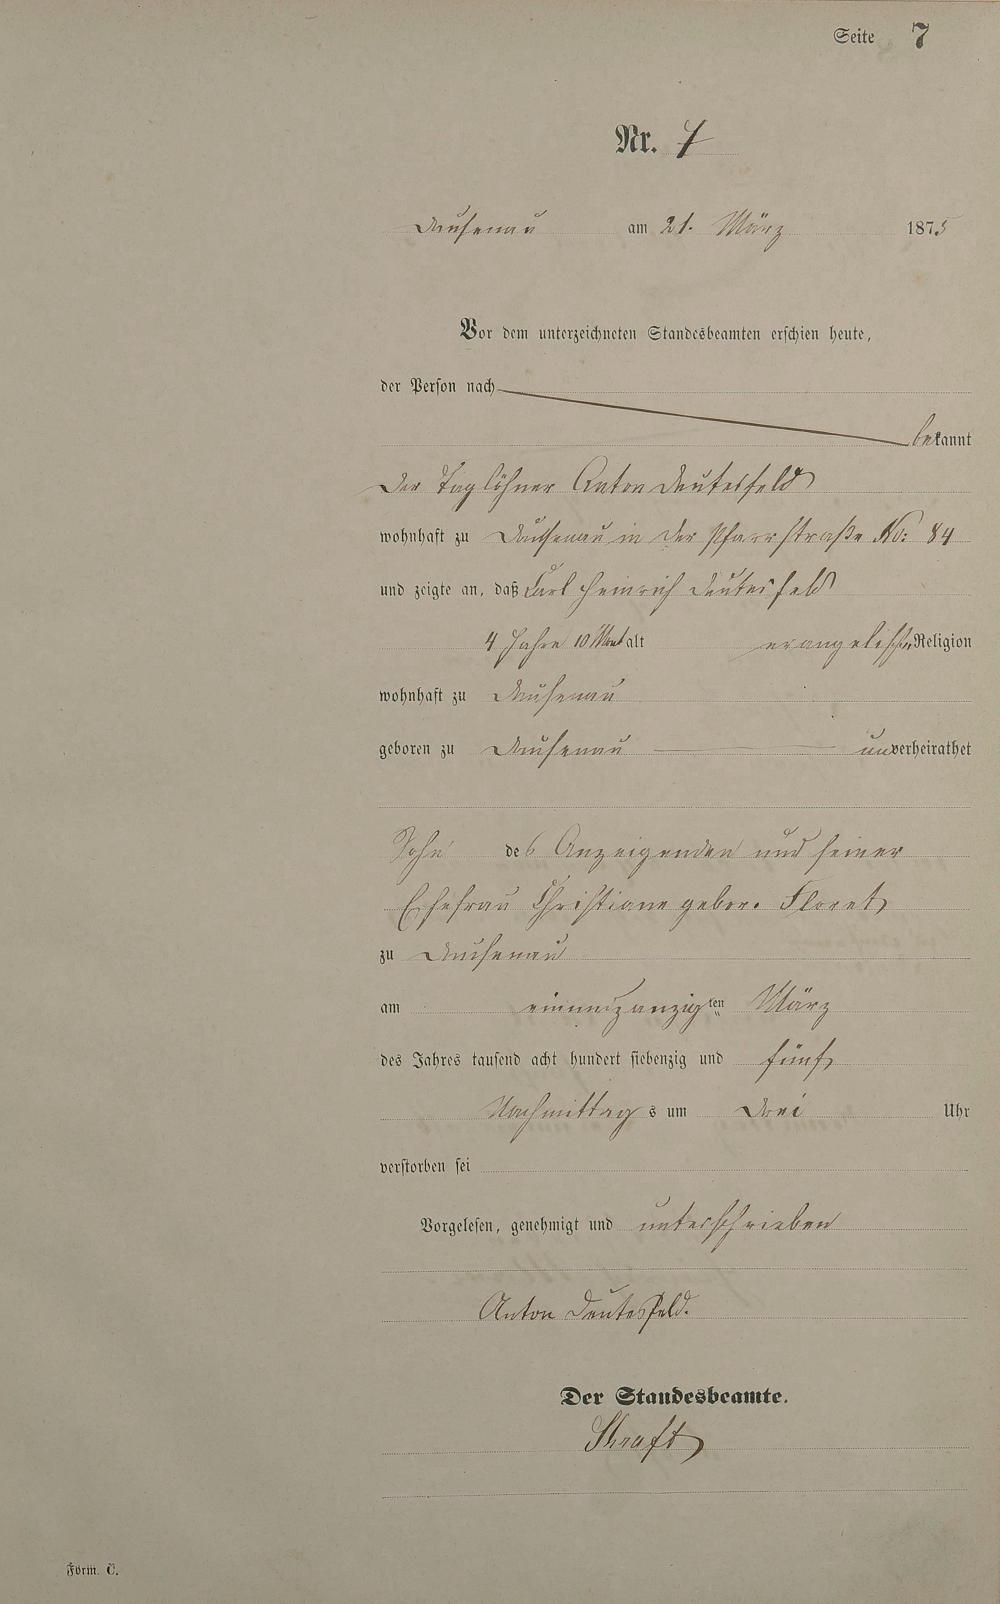 Seite 7
Nr. 7
Dausenau am 21. März 1875
Vor dem unterzeichneten Standesbeamten erschien heute,
der Person nach
bekannt
der Taglöhner Anton Deutesfeld
wohnhaft zu Dausenau in der Pfarrstraße No: 84
und zeigte an, daß Carl Heinrich Deutesfeld
4 Jahre 10 Mont alt evangelischer Religion
wohnhaft zu Dausenau
geboren zu Dausenau unverheirathet
Sohn des Anzeigenden und seiner
Ehefrau Christiane gebor. Floret
zu Dausenau
am einundzwanzigten März
des Jahres tausend acht hundert siebenzig und fünf
Nachmittags um Drei Uhr
verstorben sei
Vorgelesen, genehmigt und unterschrieben
Anton Deutesfeld.
Der Standesbeamte.
Form. C.